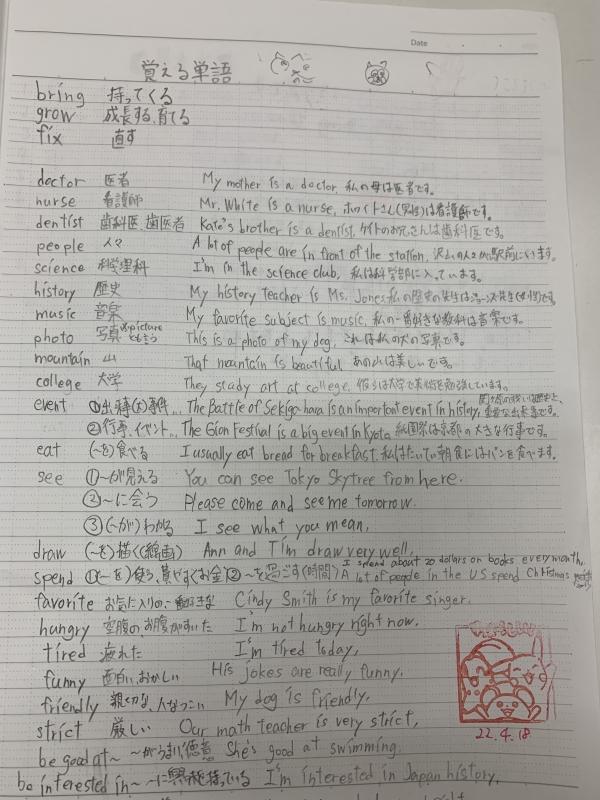 Date
覚える単語
bring 持ってくる
grow 成長する、育てる
fix 直す
doctor 医者 My mother is a doctor. 私の母は医者です。
nurse 看護師 Mr. White is a nurse. ホワイトさん(男性)は看護師です。
dentist 歯科医、歯医者 Kate's brother is a dentist. ケイトのお兄さんは歯科医です。
people 人々 A lot of people are in front of the station. 沢山の人々が駅前にいます。
science 科学、理科 I'm in the science club. 私は科学部に入っています。
history 歴史 My history teacher is Ms. Jones. 私の歴史の先生はジョーンズ先生(女性)です
music 音楽 My favorite subject is music. 私の一番好きな教科は音楽です。
photo 写真 ※picture とも言う This is a photo of my dog. これは私の犬の写真です。
mountain 山 That mountain is beautiful. あの山は美しいです。
college 大学 They study art at college. 彼らは大学で美術を勉強しています。
event ①出来事、(大)事件… The Battle of Sekigahara is an important event in history. 関ヶ原の戦いは歴史上、重要な出来事です。
②行事、イベント… The Gion Festival is a big event in Kyoto. 祇園祭は京都の大きな行事です。
eat (〜を)食べる I usually eat bread for breakfast. 私はたいてい朝食にはパンを食べます。
see ①〜が見える You can see Tokyo Skytree from here.
②〜に会う Please come and see me tomorrow.
③(〜が)わかる I see what you mean.
draw (〜を)描く(線画) Ann and Tim draw very well.
spend ①(〜を)使う、費やす(お金)②〜を過ごす(時間) I spend about 20 dollars on books every month. A lot of people in the US spend Christmas
favorite お気に入りの、一番好きな Cindy Smith is my favorite singer.
hungry 空腹の、お腹がすいた I'm not hungry right now.
tired 疲れた I'm tired today.
funny 面白い、おかしい His jokes are really funny.
friendly 親切な、人なつこい My dog is friendly.
strict 厳しい Our math teacher is very strict.
22.4.18
be good at〜 〜がうまい、得意 She's good at swimming.
be interested in〜 〜に興味を持っている I'm interested in Japan history.